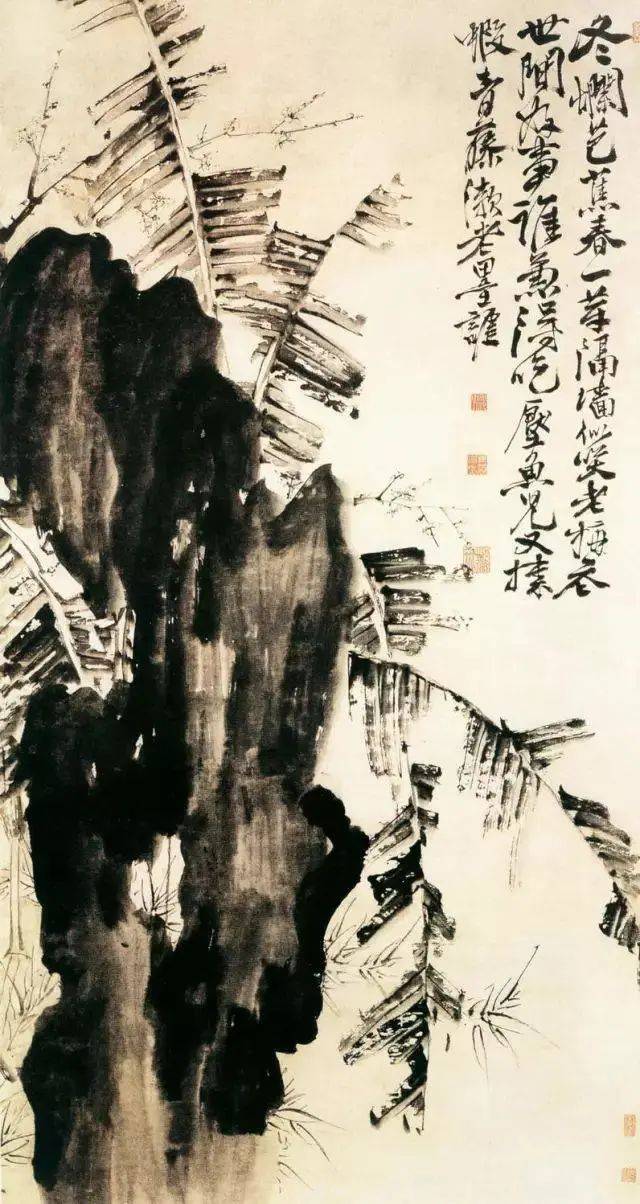 冬爛芭蕉春一芽隔墻似笑老梅花
世間好事誰兼得吃壓魚兒又揀
蝦青藤漱老墨謔